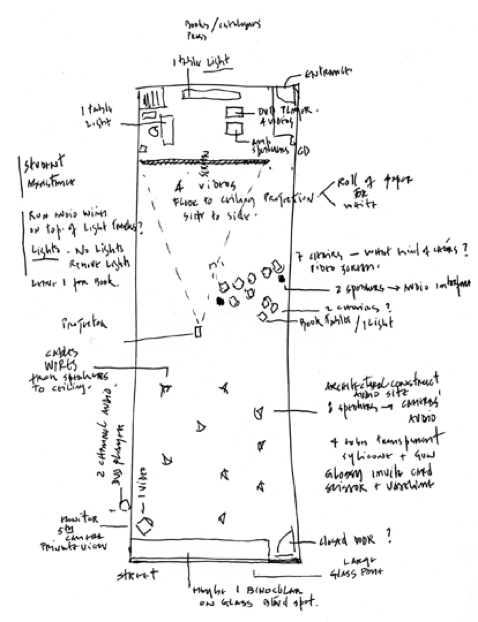 Books/catalogues
Press
1 table Light
ENTRANCE
1 table
Light
DVD PLAYER
4 VIDEOS
AMP
SPEAKERS
CD
STUDENT
Assistance
SCREEN
4 videos
FLOOR TO Ceiling Projection
side to side.
Roll of paper
OR
white
Run Audio Wires
on top of Light tracks?
Lights - No Lights
Remove Lights
Leave 1 for Book.
7 chairs - What kind of chairs?
VIDEO SCREEN.
2 speakers → AUDIO
2 chairs?
Book tables / 1 Light
Projector
cables
WIRES
from speakers
to ceiling.
ARCHITECTURAL CONSTRUCT
AUDIO SITE
8 speakers → CAMERAS'
AUDIO
4 tubes transparent
sylicone + Gun
Glossy invite card
scissor + Vaseline
2 CHANNEL AUDIO
DVD PLAYER
1 VIDEO
MONITOR
SPY
CAMERA
PRIVATE VIEW
Closed DOOR?
STREET
Height 1 BINOCULAR
ON GLASS Blind spot.
LARGE
GLASS FRONT